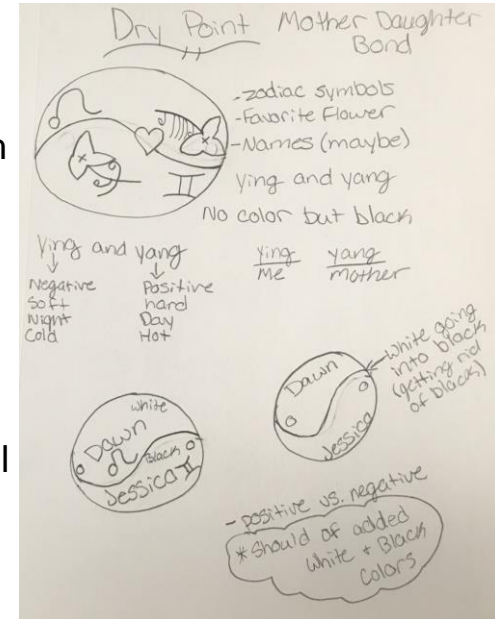 Dry Point
Mother Daughter
Bond
-zodiac symbols
-Favorite Flower
-Names (maybe)
ying and yang
No color but black
Ying and yang
Negative
Soft
Night
Cold
Positive
hard
Day
Hot
Ying
me
yang
mother
Dawn
white
Black
Jessica
Dawn
Jessica
white going
into black
(getting rid
of black)
- positive vs. negative
* Should of added
White + Black
Colors
n
l